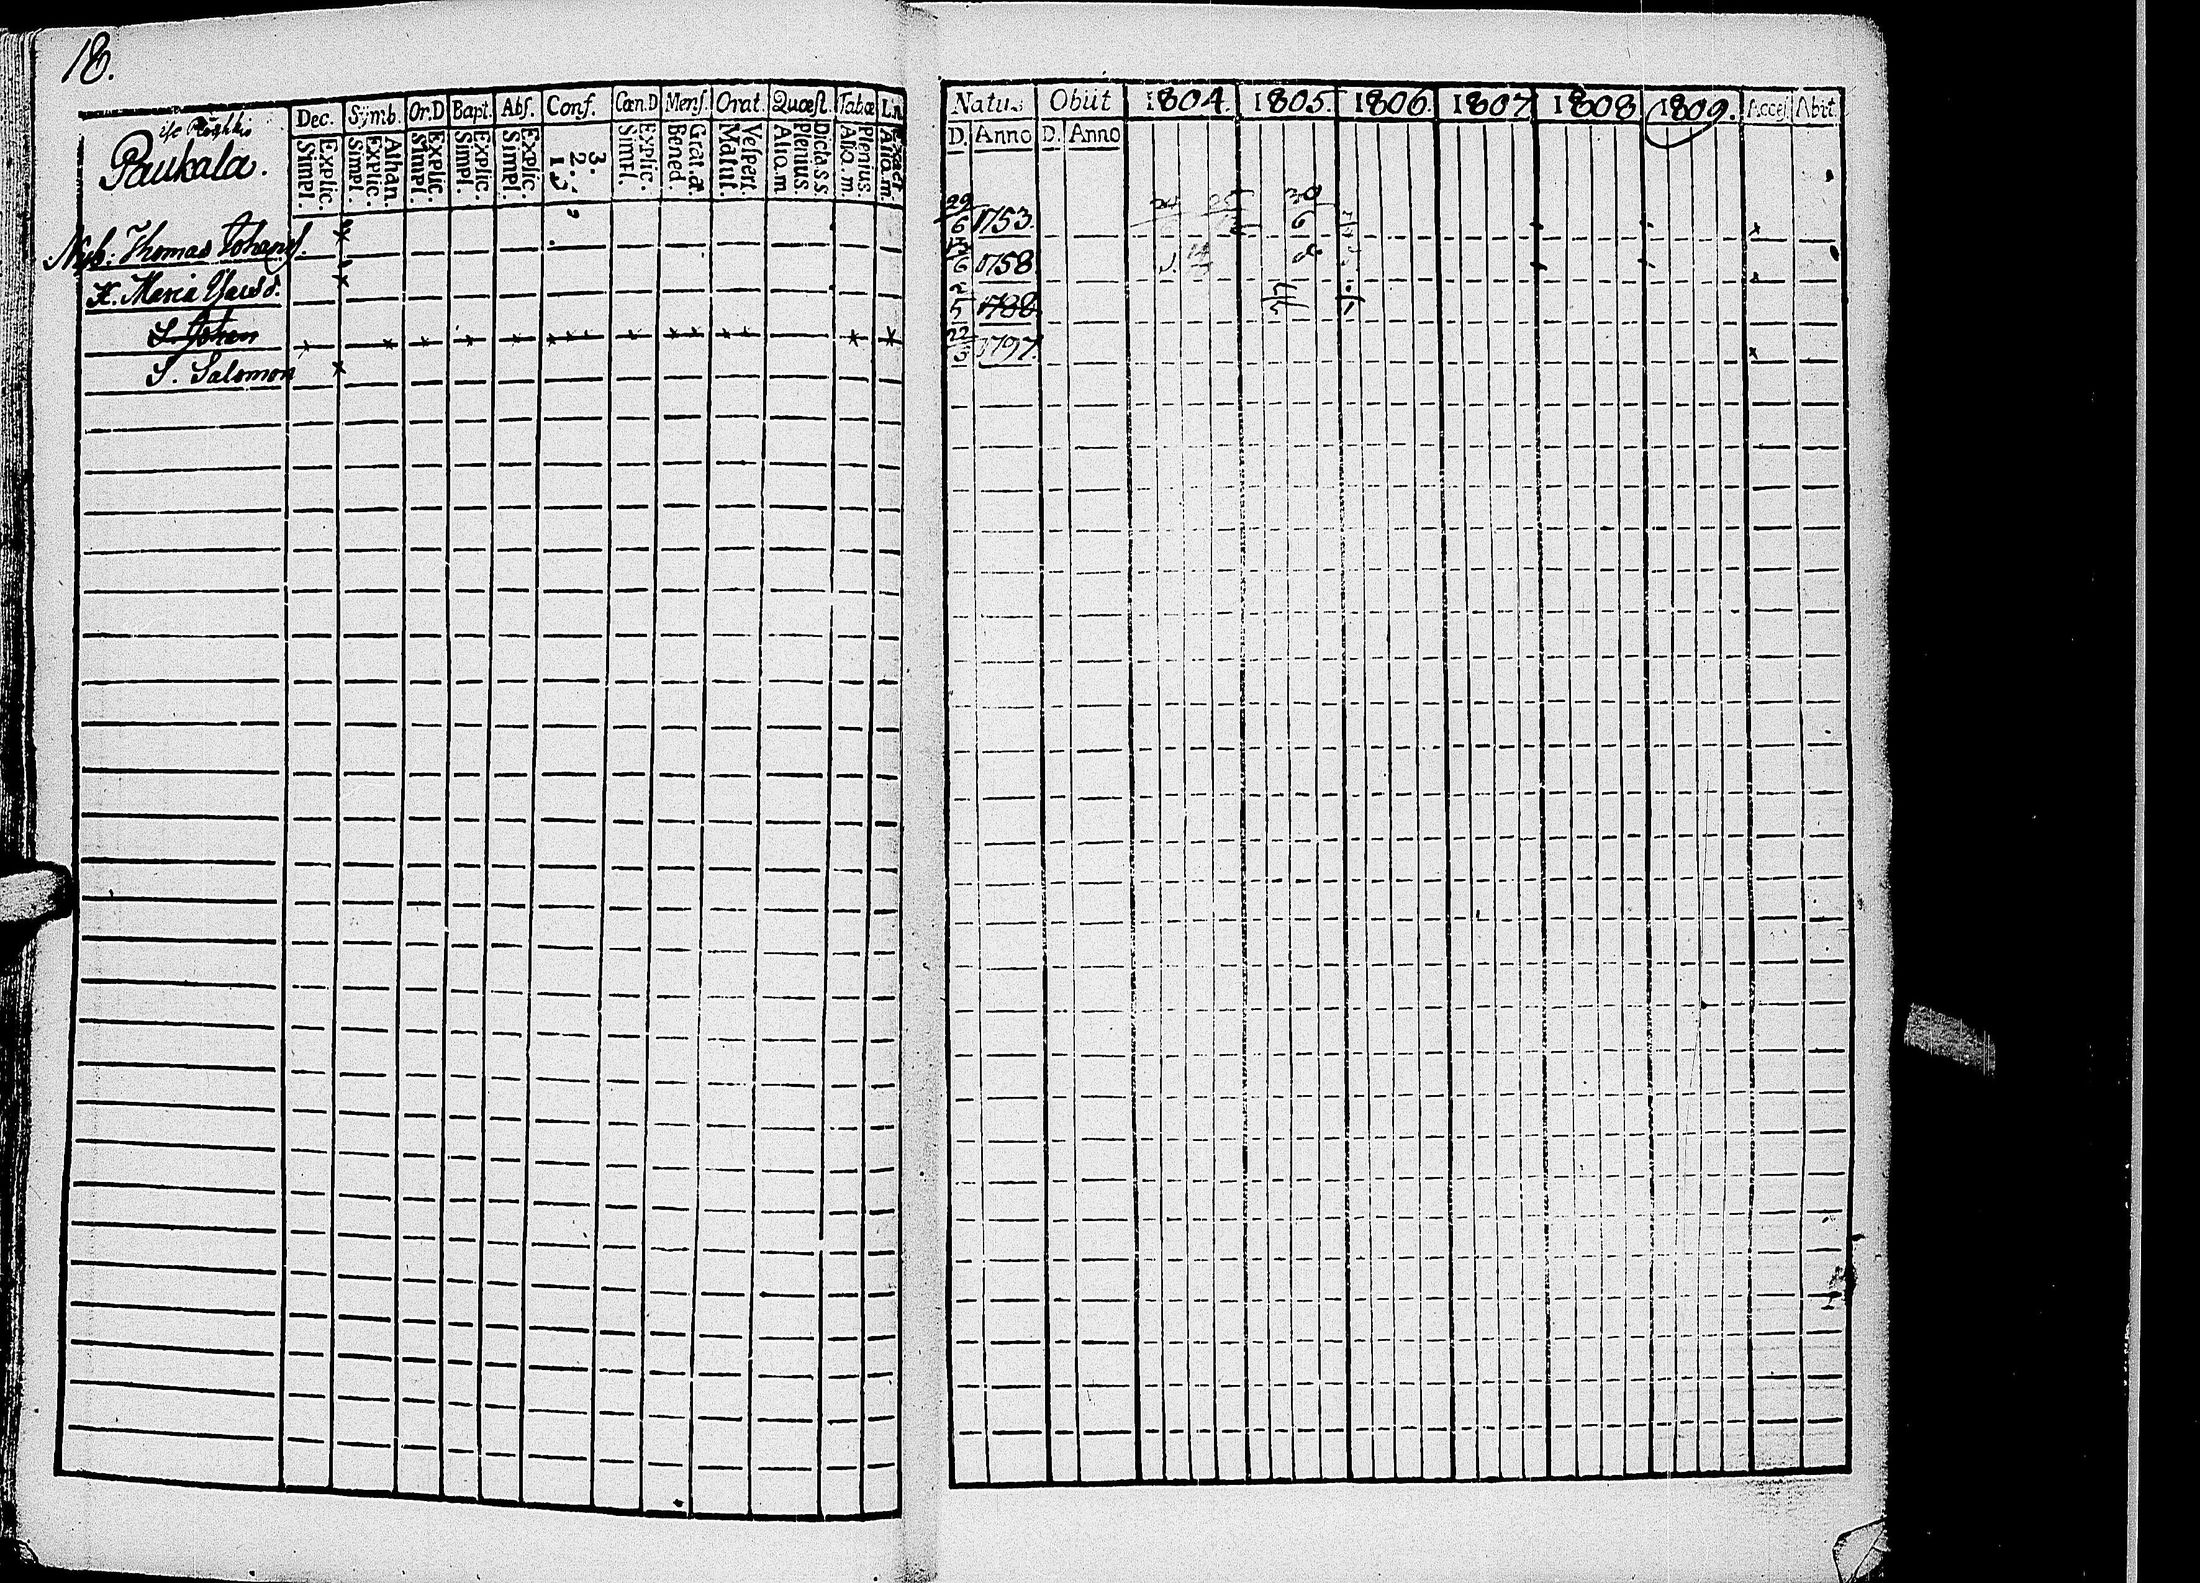 18.
Dec. Symb. Or.D Bapt. Abs. Conf. Cœn.D Mens. Orat. Quæst. Tabæ L.n.
Paukala.
Explic. Simpl. Athan. Explic. Simpl. Explic. Simpl. Explic. Simpl. Explic. Simpl. 3. 2. 1. Explic. Simpl. Grat.a. Bened. Vespert. Matut. Dicta s s. Plenius Alio. m. Plenius. Alio. m.
Nyb: Thomas Johans.
H. Maria
S. Johan
S. Salomon
Natus Obiit 1804. 1805. 1806. 1807 1808 1809. Acces. Abit.
D. Anno D. Anno
29/6 1753. 30/6
6 1758.
2/5 1788
22/3 1797.